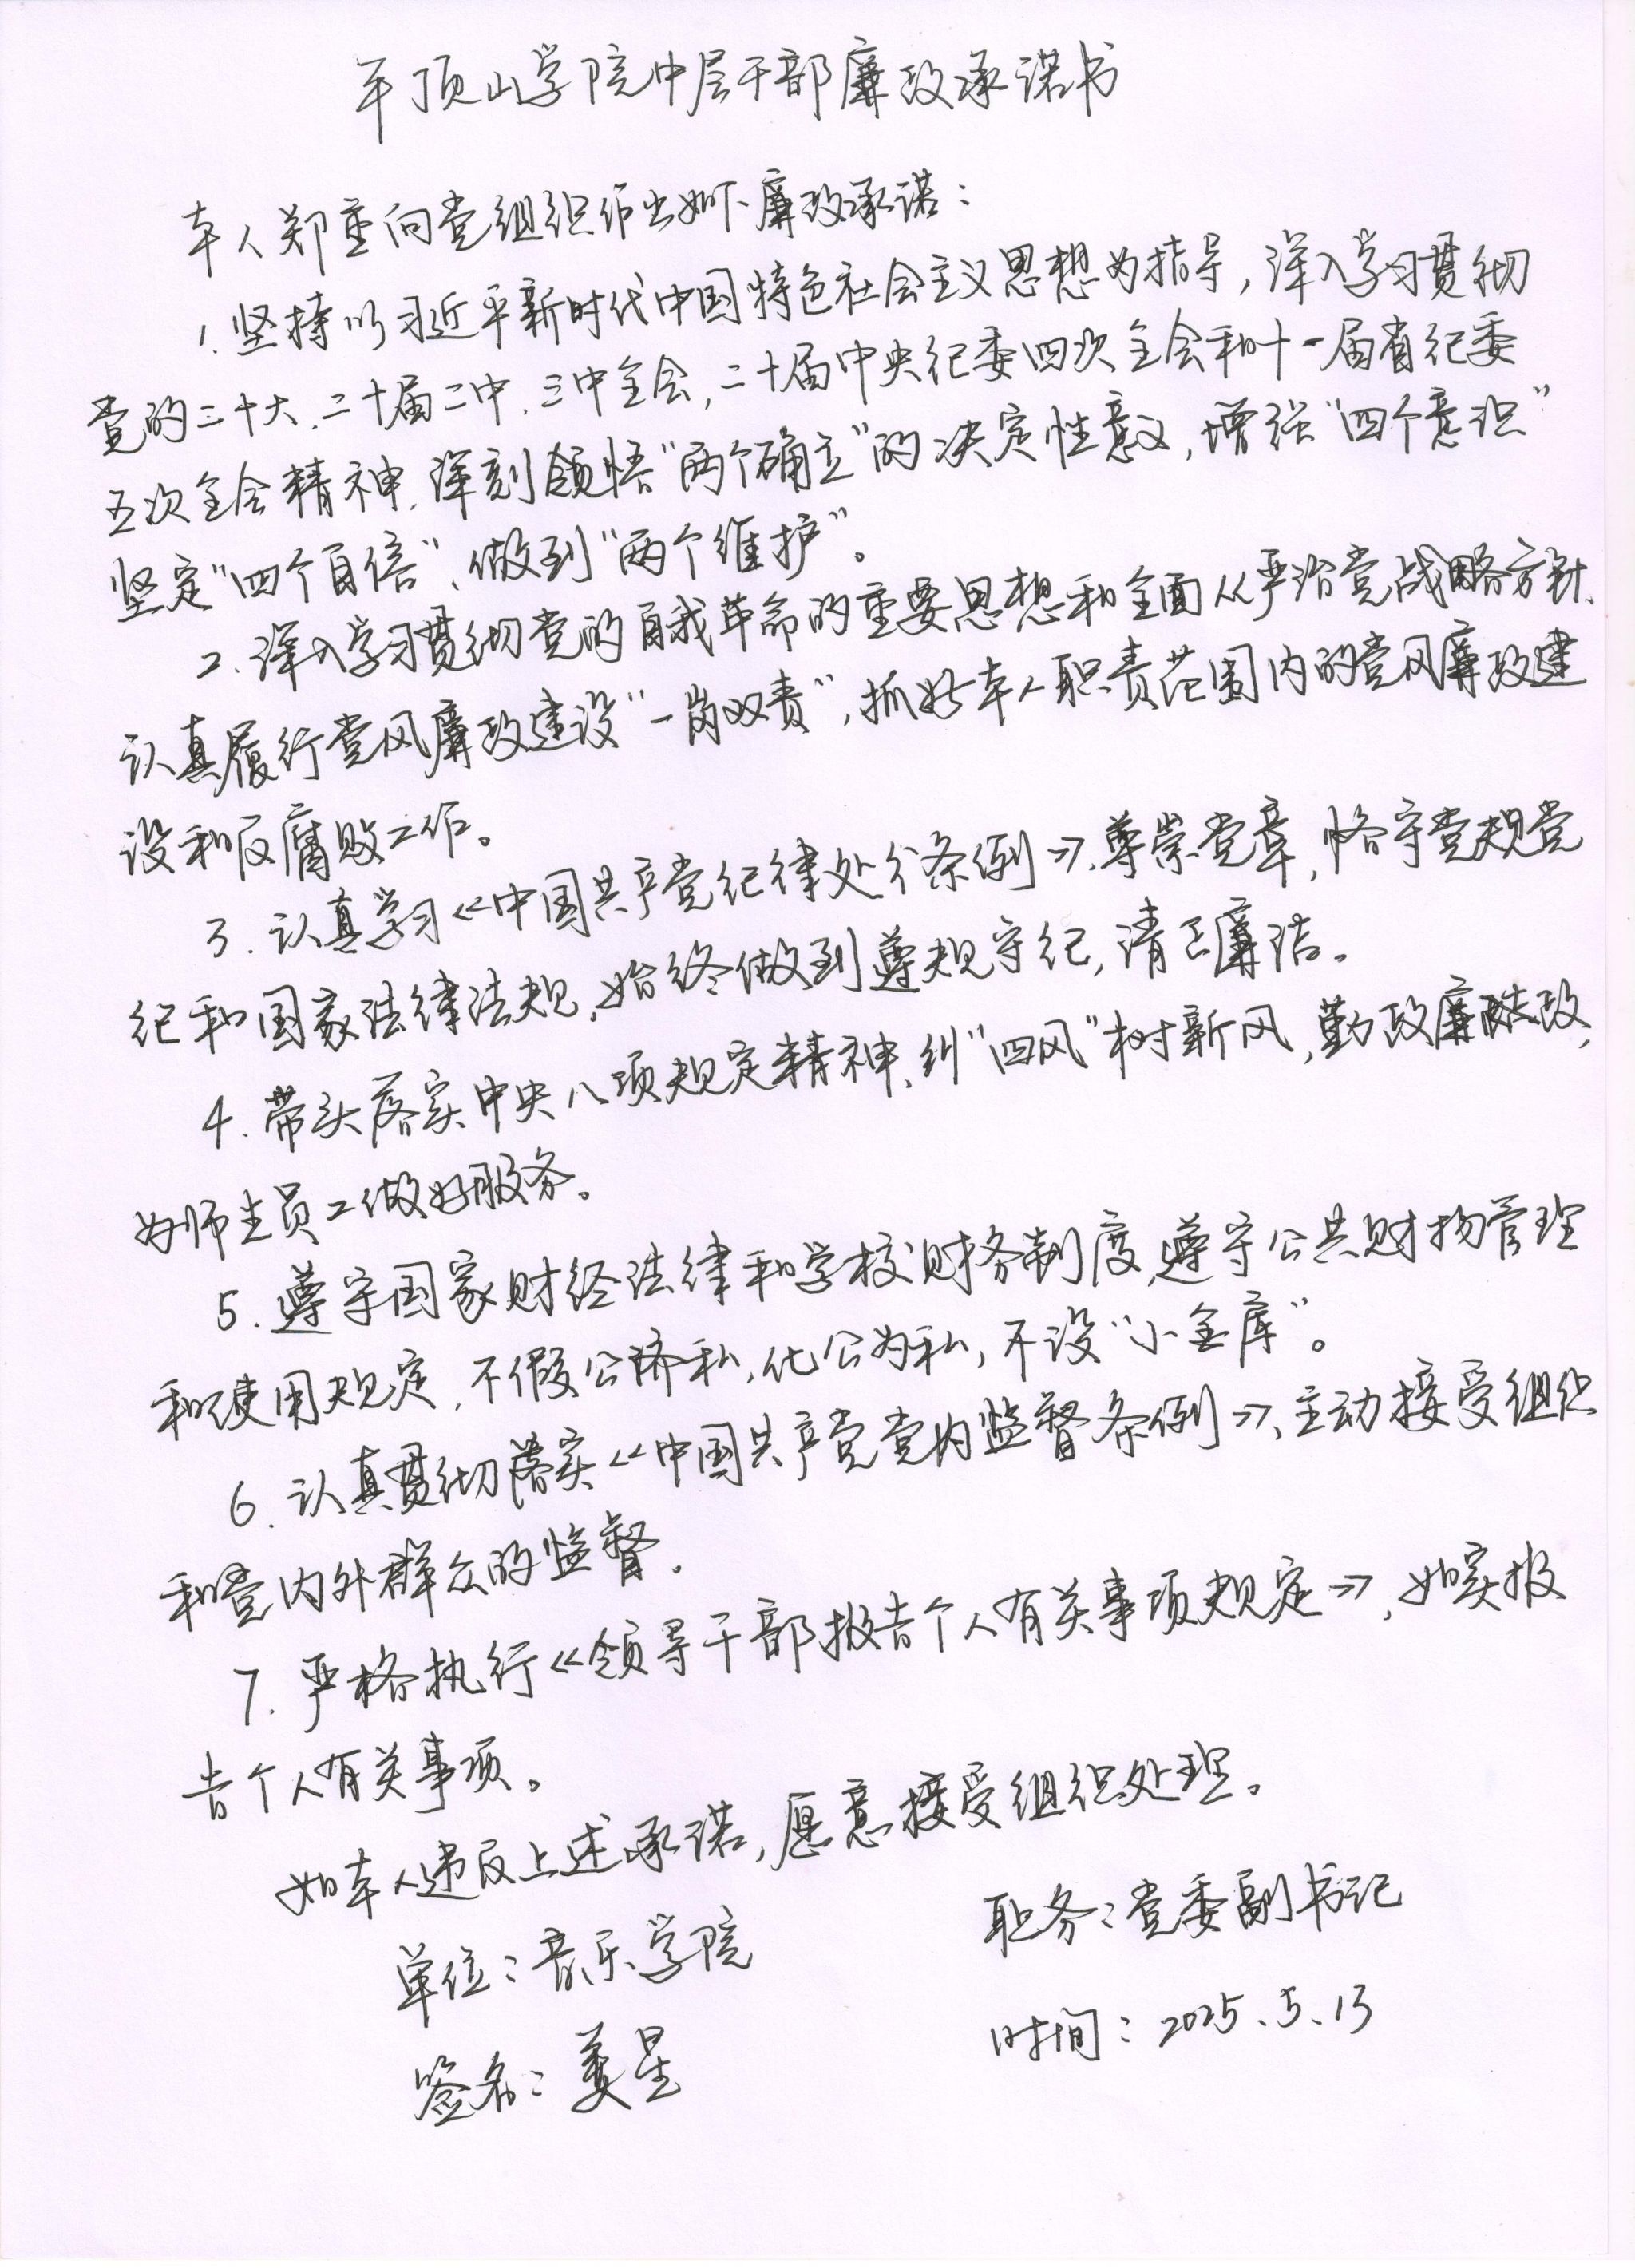 平顶山学院中层干部廉政承诺书
本人郑重向党组织作出如下廉政承诺：
1.坚持以习近平新时代中国特色社会主义思想为指导，深入学习贯彻
党的二十大、二十届二中、三中全会，二十届中央纪委四次全会和十一届省纪委
五次全会精神，深刻领悟“两个确立”的决定性意义，增强“四个意识”
坚定“四个自信”、做到“两个维护”。
2.深入学习贯彻党的自我革命的重要思想和全面从严治党战略方针、
认真履行党风廉政建设“一岗双责”，抓好本人职责范围内的党风廉政建
设和反腐败工作。
3.认真学习《中国共产党纪律处分条例》，尊崇党章，恪守党规党
纪和国家法律法规，始终做到遵规守纪，清正廉洁。
4.带头落实中央八项规定精神、纠“四风”树新风，勤政廉政，
为师生员工做好服务。
5.遵守国家财经法律和学校财务制度，遵守公共财物管理
和使用规定，不假公济私，化公为私，不设“小金库”。
6.认真贯彻落实《中国共产党党内监督条例》，主动接受组织
和党内外群众的监督。
7.严格执行《领导干部报告个人有关事项规定》，如实报
告个人有关事项。
如本人违反上述承诺，愿意接受组织处理。
单位：音乐学院 职务：党委副书记
签名：姜星 时间：2025、5、13